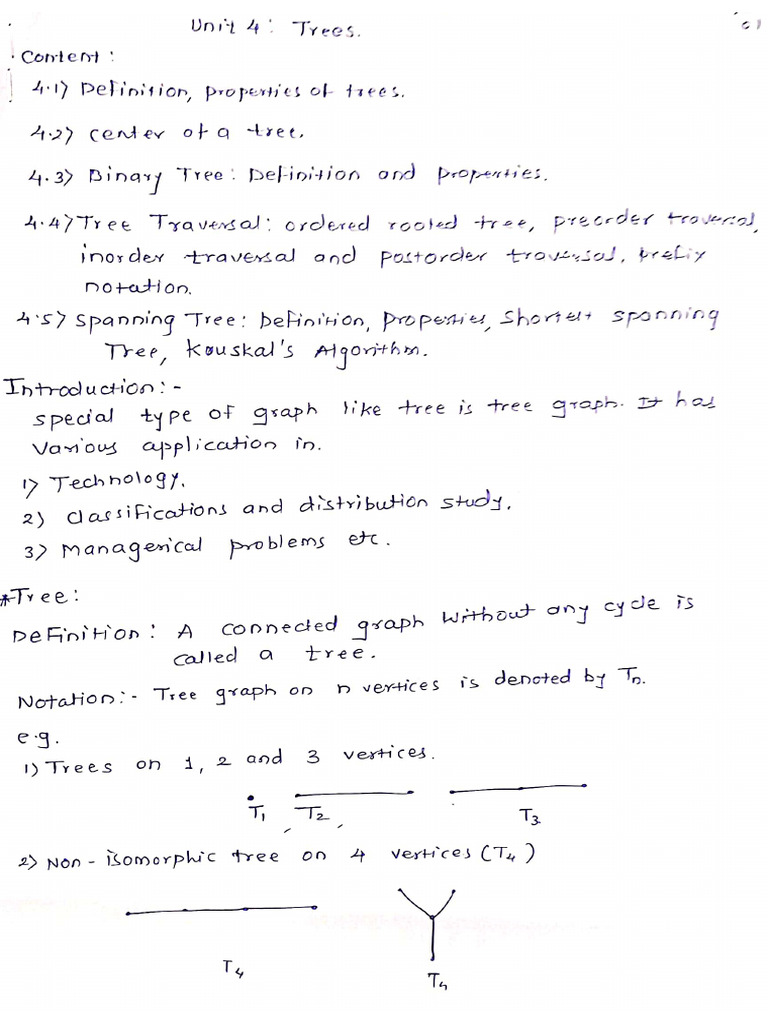 Unit 4: Trees.
01
Content:
4.1) Definition, properties of trees.
4.2) center of a tree.
4.3) Binary Tree: Definition and properties.
4.4) Tree Traversal: ordered rooted tree, preorder traversal,
inorder traversal and postorder traversal, prefix
notation.
4.5) Spanning Tree: Definition, Properties, Shortest spanning
Tree, Kruskal's Algorithm.
Introduction:-
special type of graph like tree is tree graph. It has
various application in.
1) Technology.
2) classifications and distribution study.
3) Managerical problems etc.
*Tree:
Definition: A connected graph without any cycle is
called a tree.
Notation:- Tree graph on n vertices is denoted by Tn.
e.g.
1) Trees on 1, 2 and 3 vertices.
T1 T2 T3
2) Non-isomorphic tree on 4 vertices (T4)
T4 T4